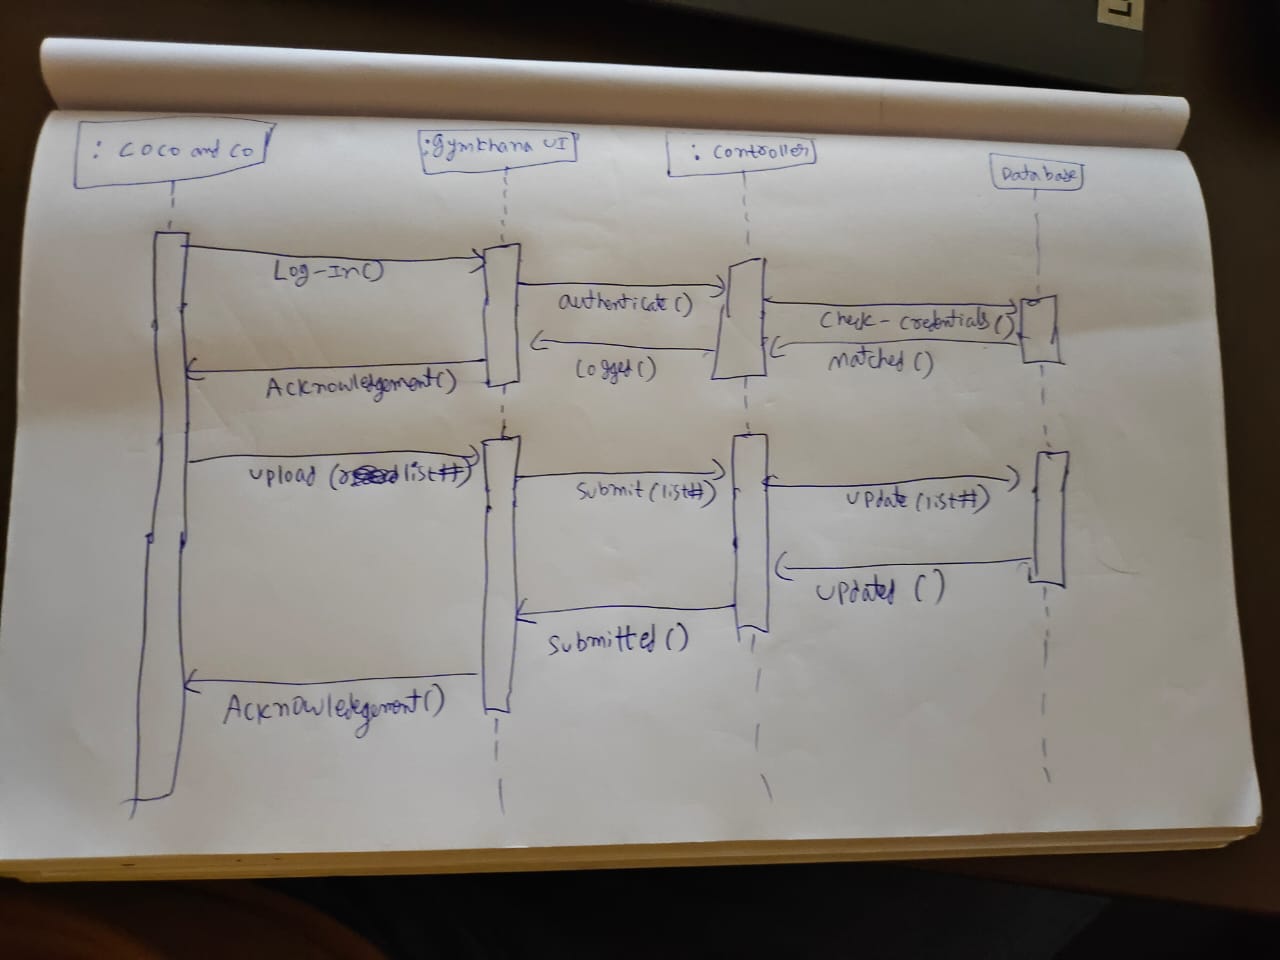 : COCO and CO
:Gymkhana UI
: Controller
Database
Log-In()
authenticate ()
Check-credentials()
Matched ()
Logged ()
Acknowledgement()
upload (list#)
Submit (list#)
update (list#)
updated ()
Submitted ()
Acknowledegement()